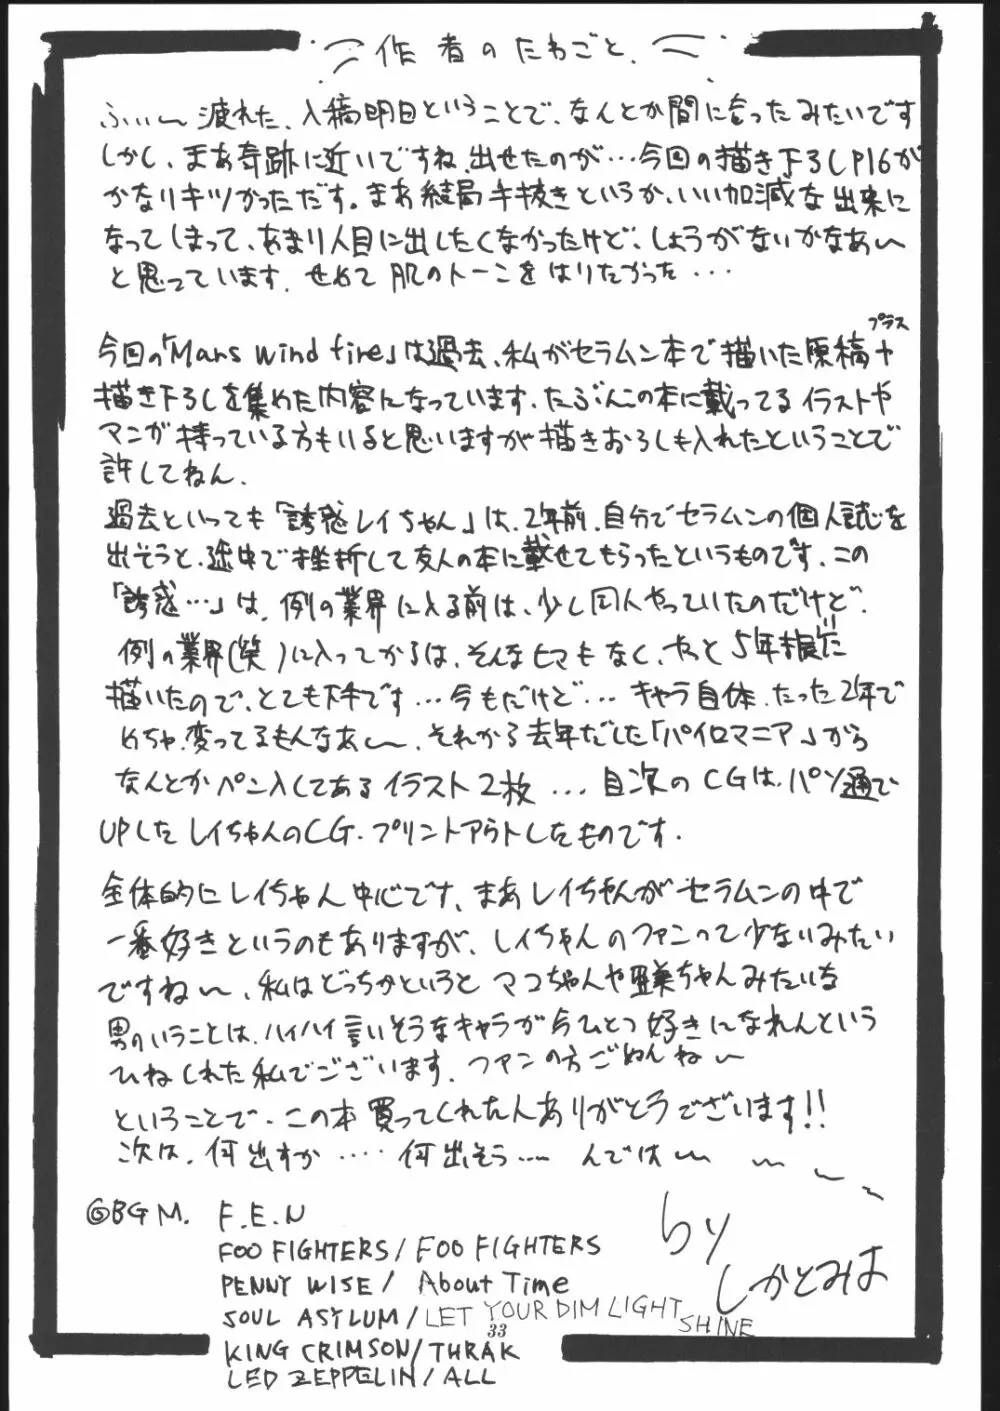 作者のたわごと.
ふぃ〜疲れた、入稿明日ということで、なんとか間に合ったみたいです
しかし、まあ奇跡に近いですね、出せたのが…今回の描き下ろしP16が
かなりキツかっただす。まあ結局手抜きというか、いい加減な出来に
なってしまって、あまり人目に出したくなかったけど、しょうがないかなあ〜
と思っています. せめて肌のトーンをはりたかった...
今回の「Mars wind fire」は過去、私がセラムン本で描いた原稿+
プラス
描き下ろしを集めた内容になっています.たぶんこの本に載ってるイラストや
マンガ持っている方もいると思いますが描きおろしも入れたということで
許してねん.
過去といっても「誘惑レイちゃん」は、2年前、自分でセラムンの個人誌を
出そうと、途中で挫折して友人の本に載せてもらったというものです.この
「誘惑…」は、例の業界に入る前は、少し同人やっていたのだけど、
例の業界(笑)に入ってからは、そんなヒマもなく、やっと5年振に
描いたので、とても下手です…今もだけど… キャラ自体、たった2年で
めちゃ、変ってるもんなあ〜、それから去年だした「パイロマニア」から
なんとかペン入してあるイラスト2枚 ... 目次のCGは、パソ通で
UPしたレイちゃんのCG、プリントアウトしたものです.
全体的にレイちゃん中心です、まあレイちゃんがセラムンの中で
一番好きというのもありますが、レイちゃんのファンって少ないみたい
ですね〜、私はどっちかというとマコちゃんや亜美ちゃんみたいな
男のいうことは、ハイハイ言いそうなキャラが今ひとつ好きになれんという
ひねくれた私でございます. ファンの方ごめんね〜
ということで、この本買ってくれた人ありがとうでございます!!
次は、何出すか .... 何出そう…… んでは〜 〜 〜 〜
◎BGM. F.E.N
FOO FIGHTERS/FOO FIGHTERS
PENNY WISE/ About Time
SOUL ASYLUM/LET YOUR DIM LIGHT SHINE
KING CRIMSON/THRAK
LED ZEPPELIN/ALL
by しかとみは
33